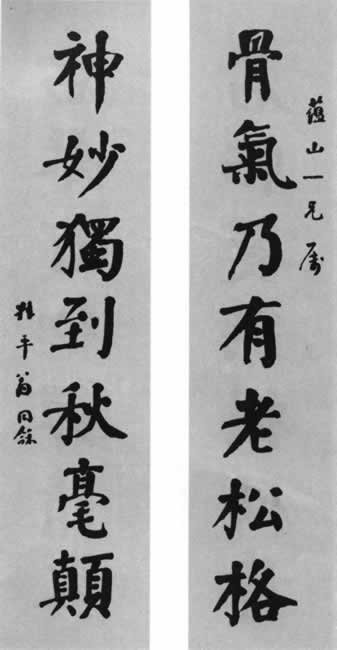 骨氣乃有老松格
蘊山一兄属
神妙獨到秋毫顛
叔平翁同龢